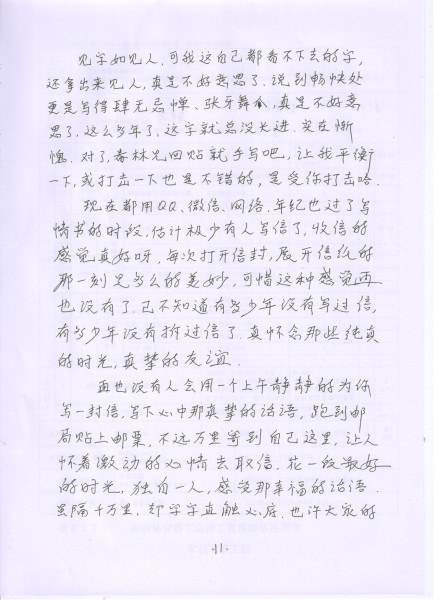 见字如见人，可我这自己都看不下去的字，
还拿出来见人，真是不好意思了。说到畅快处
更是写得肆无忌惮、张牙舞爪，真是不好意
思了，这么多年了，这字就总没长进，实在惭
愧。对了，春林兄回贴就手写吧，让我平衡
一下，或打击一下也是不错的，是受你打击哈
现在都用QQ、微信、网络，年纪也过了写
情书的时段，估计极少有人写信了，收信的
感觉真好呀，每次打开信封，展开信纸的
那一刻是多么的美妙，可惜这种感觉再
也没有了。已不知道有多少年没有写过信，
有多少年没有拆过信了。真怀念那些纯真
的时光，真挚的友谊。
再也没有人会用一个上午静静的为你
写一封信，写下心中那真挚的话语，跑到邮
局贴上邮票，不远万里寄到自己这里，让人
怀着激动的心情去取信，花一段最好
的时光，独自一人，感受那幸福的话语。
虽隔千万里，却字字直触心底。也许大家的
·11·